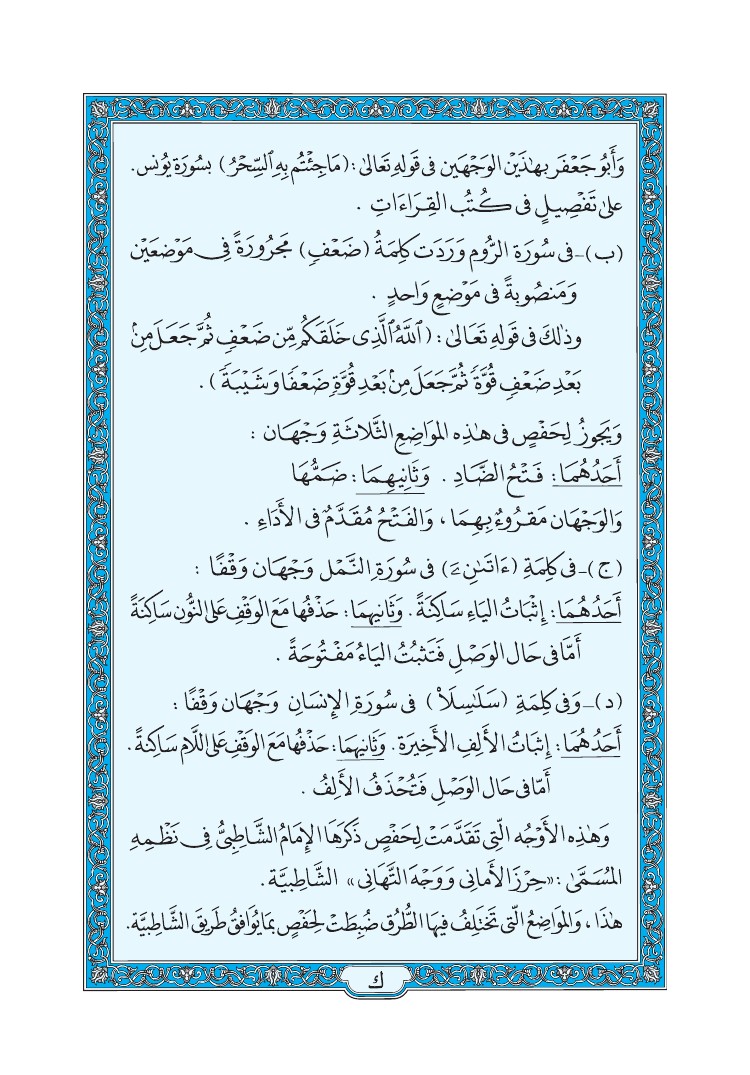 وَأَبُو جَعْفَر بِهٰذَيْنِ الوَجْهَيْنِ فِى قَولِهِ تَعَالىٰ : ( مَا جِئْتُم بِهِ ٱلسِّحْرُ ) بسُورَة يُونس .
عَلىٰ تَفْصِيلٍ فِى كُتُبِ القِرَاءَاتِ .
(ب)- فِى سُورَةِ الرُّومِ وَرَدَت كَلِمَةُ ( ضَعْفٍ ) مَجرُورَةً فِى مَوْضعَيْن
وَمَنصُوبَةً فِى مَوْضعٍ وَاحدٍ .
وذٰلكَ فِى قَولِهِ تَعَالىٰ : ( ٱللَّهُ ٱلَّذِى خَلَقَكُم مِّن ضَعْفٍ ثُمَّ جَعَلَ مِنۢ
بَعْدِ ضَعْفٍ قُوَّةً ثُمَّ جَعَلَ مِنۢ بَعْدِ قُوَّةٍ ضَعْفًا وَشَيْبَةً ) .
وَيَجوزُ لِحَفْصٍ فِى هٰذِهِ المَوَاضِعِ الثَّلَاثَةِ وَجْهَان :
أَحَدُهُمَا : فَتْحُ الضَّادِ . وَثَانِيهِمَا : ضَمُّهَا
وَالوَجْهَان مَقرُوءٌ بِهِمَا ، وَالفَتْحُ مُقَدَّمٌ فِى الأَدَاءِ .
(ج)- فِى كَلِمَةِ ( ءَاتَىٰنِۦَ ) فِى سُورَةِ النَّمْلِ وَجْهَان وَقْفًا :
أَحَدُهُمَا : إِثْبَاتُ اليَاءِ سَاكِنَةً . وَثَانِيهِمَا : حَذْفُهَا مَعَ الوَقْفِ عَلَى النُّون سَاكِنَةً
أَمَّا فِى حَالِ الوَصْلِ فَتَثبُتُ اليَاءُ مَفْتُوحَةً .
(د)- وَفِى كَلِمَةِ ( سَلَٰسِلَا۟ ) فِى سُورَةِ الإِنسَانِ وَجْهَان وَقْفًا :
أَحَدُهُمَا : إِثبَاتُ الأَلِفِ الأَخِيرَة . وَثَانِيهِمَا : حَذْفُهَا مَعَ الوَقْفِ عَلَى اللَّامِ سَاكِنةً .
أَمّا فِى حَال الوَصْلِ فَتُحْذَفُ الأَلِفُ .
وَهٰذِهِ الأَوْجُه الَّتِى تَقَدَّمَتْ لِحَفْصٍ ذَكَرَهَا الإِمَامُ الشَّاطِبِىُّ فِى نَظْمِهِ
المُسَمَّىٰ : «حِرْزَ الأمَانِى وَوَجْهَ التَّهَانِى» الشَّاطِبيَّة .
هٰذَا ، وَالمَوَاضِعُ الَّتِى تَختَلِفُ فِيهَا الطُّرُق ضُبِطَتْ لِحَفْصٍ بِمَا يُوَافِقُ طَرِيقَ الشَّاطِبيَّة .
ك